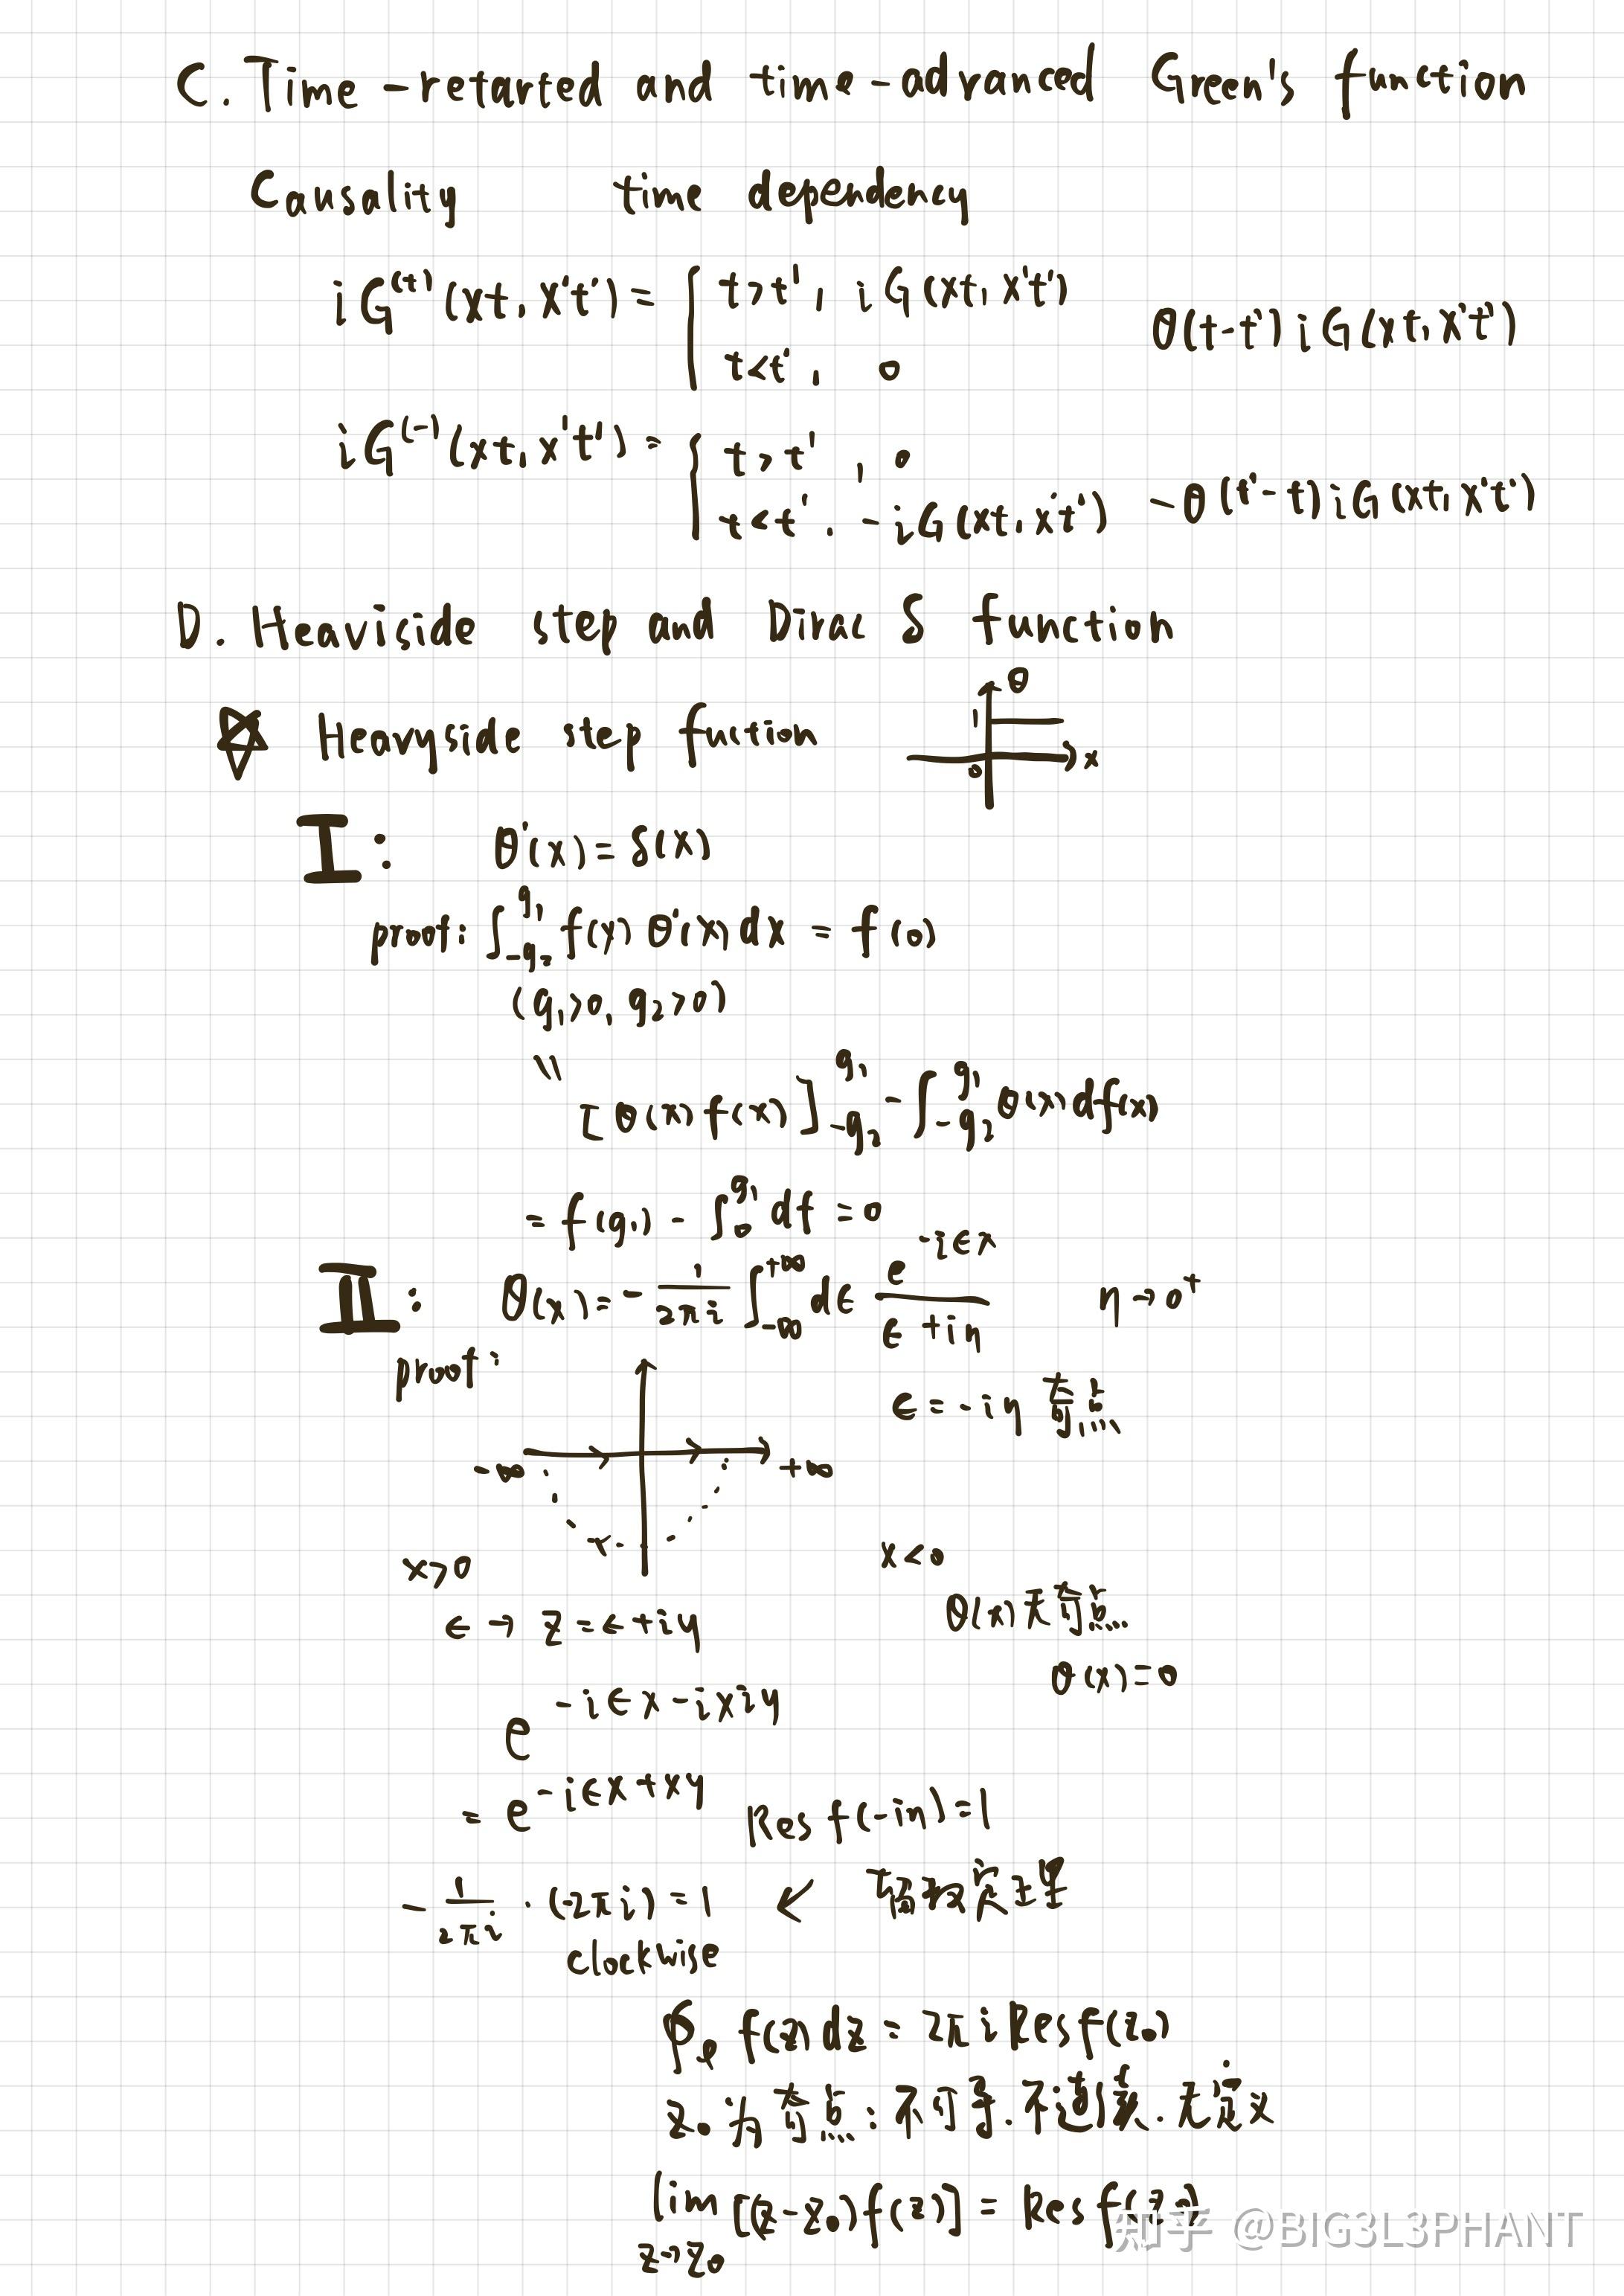 C. Time-retarted and time-advanced Green's function
Causality time dependency
iG⁽⁺⁾(xt, x't') = { t>t', iG(xt, x't') θ(t-t') iG(xt, x't')
t<t', 0
iG⁽⁻⁾(xt, x't') = { t>t', 0
t<t', -iG(xt, x't') -θ(t'-t) iG(xt, x't')
D. Heaviside step and Dirac δ function
☆ Heavyside step fuction
θ
1
0 x
I: θ'(x) = δ(x)
proof: ∫_{-g₂}^{g₁} f(x) θ'(x) dx = f(0)
(g₁>0, g₂>0)
\\
[θ(x) f(x)]_{-g₂}^{g₁} - ∫_{-g₂}^{g₁} θ(x) df(x)
= f(g₁) - ∫_0^{g₁} df = 0
II: θ(x) = -\frac{1}{2πi} ∫_{-∞}^{+∞} dϵ \frac{e^{-iϵx}}{ϵ+iη} η→0⁺
proof: ϵ = -iη 奇点
-∞ +∞
x>0 x<0
θ(x)无奇点
ϵ → z = ϵ+iy
θ(x)=0
e^{-iϵx-ixiy}
= e^{-iϵx+xy} Res f(-iη)=1
-\frac{1}{2πi} · (-2πi) = 1 < 留数定理
clockwise
∮_ℓ f(z) dz = 2πi Res f(z₀)
z₀为奇点: 不可导. 不连续. 无定义
lim_{z→z₀} [(z-z₀) f(z)] = Res f(z₀)
知乎 @BIG3L3PHANT